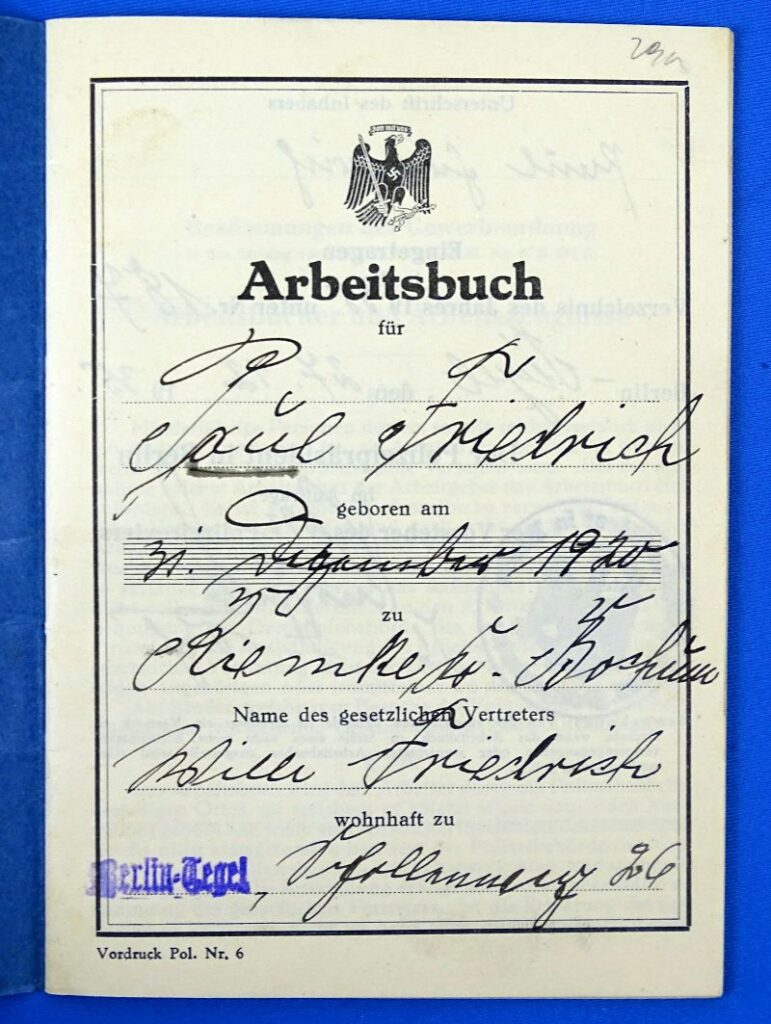 Gott mit uns
Arbeitsbuch
für
Paul Friedrich
geboren am
31. Dezember 1920
zu
Riemke, Kr. Bochum
Name des gesetzlichen Vertreters
Willi Friedrich
wohnhaft zu
Berlin-Tegel, Schollenweg 26
Vordruck Pol. Nr. 6